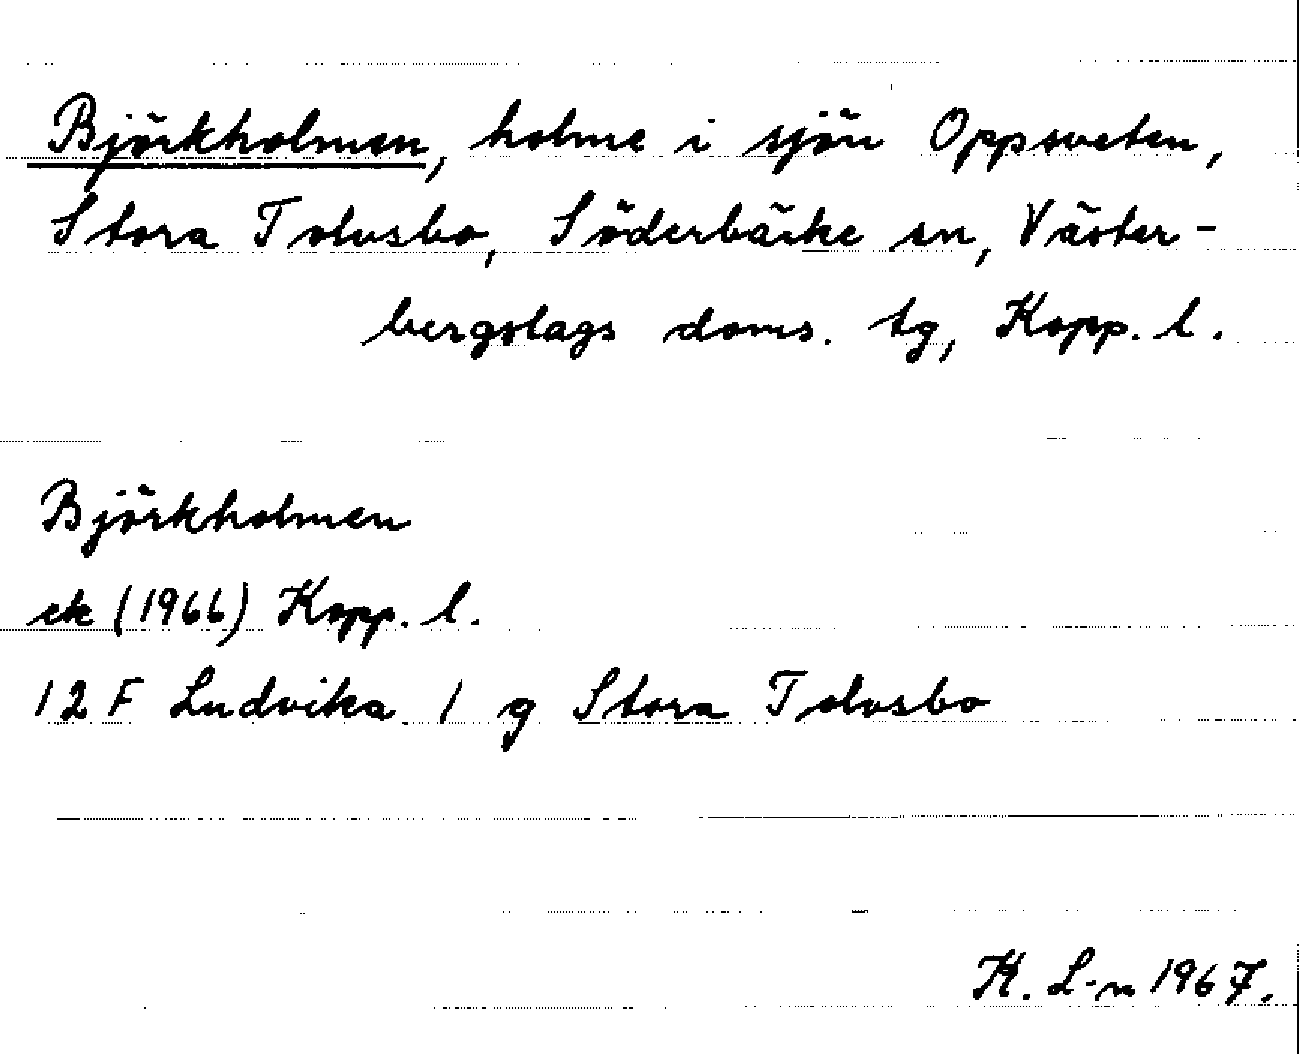 Björkholmen, holme i sjön Oppsveten,
Stora Tolvsbo, Söderbärke sn, Väster-
bergslags doms. tg, Kopp. l.
Björkholmen
ek (1966) Kopp. l.
12 F Ludvika 1 g Stora Tolvsbo
K. L-n 1967.